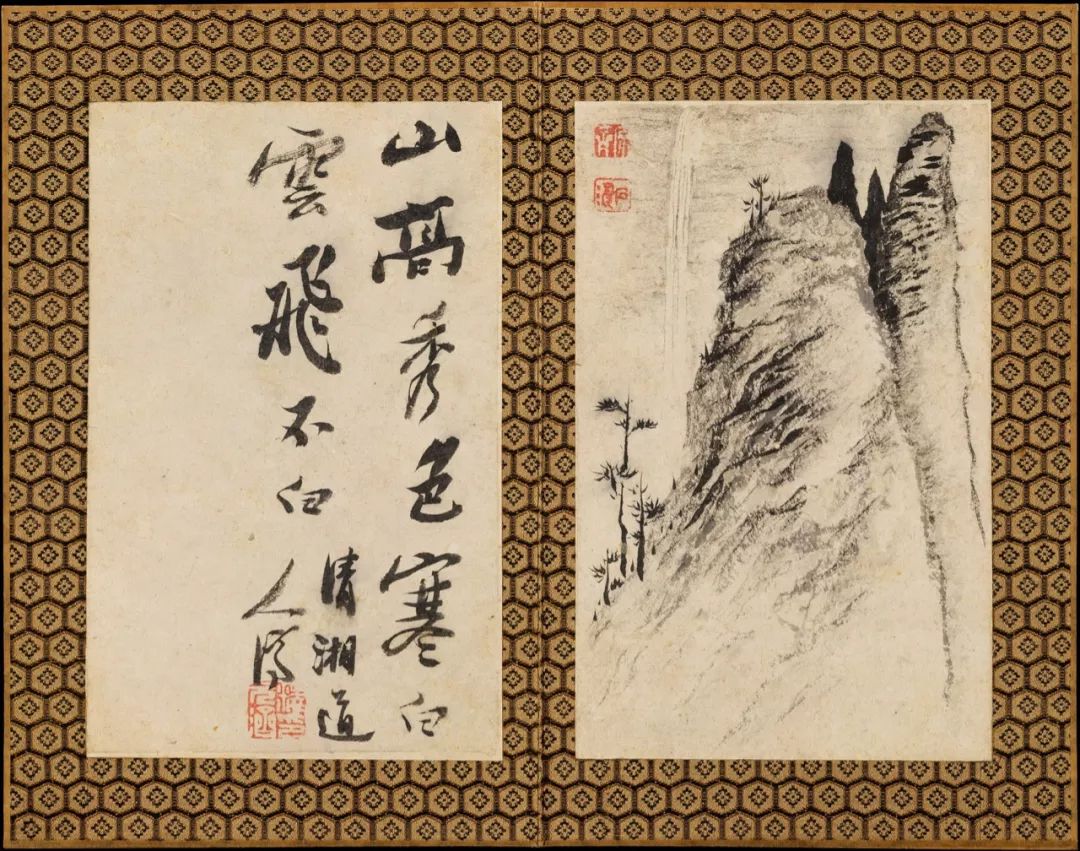 山髙秀色寒白
雲飛不白
清湘道
人濟